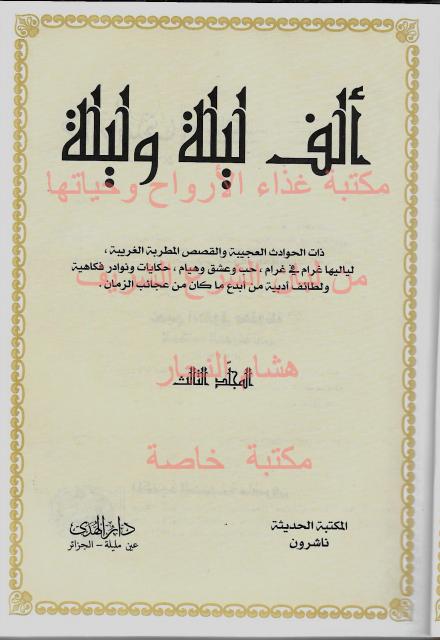 ألف ليلة وليلة
مكتبة غذاء الأرواح وحياتها
ذات الحوادث العجيبة والقصص المطربة الغريبة ،
لياليها غرام في غرام ، حب وعشق وهيام ، حكايات ونوادر فكاهية
من لبان الشرع الشريف
ولطائف أدبية من أبدع ما كان من عجائب الزمان .
هشام النجار
المجلد الثالث
مكتبة خاصة
المكتبة الحديثة
ناشرون
دار الهدى
عين مليلة - الجزائر